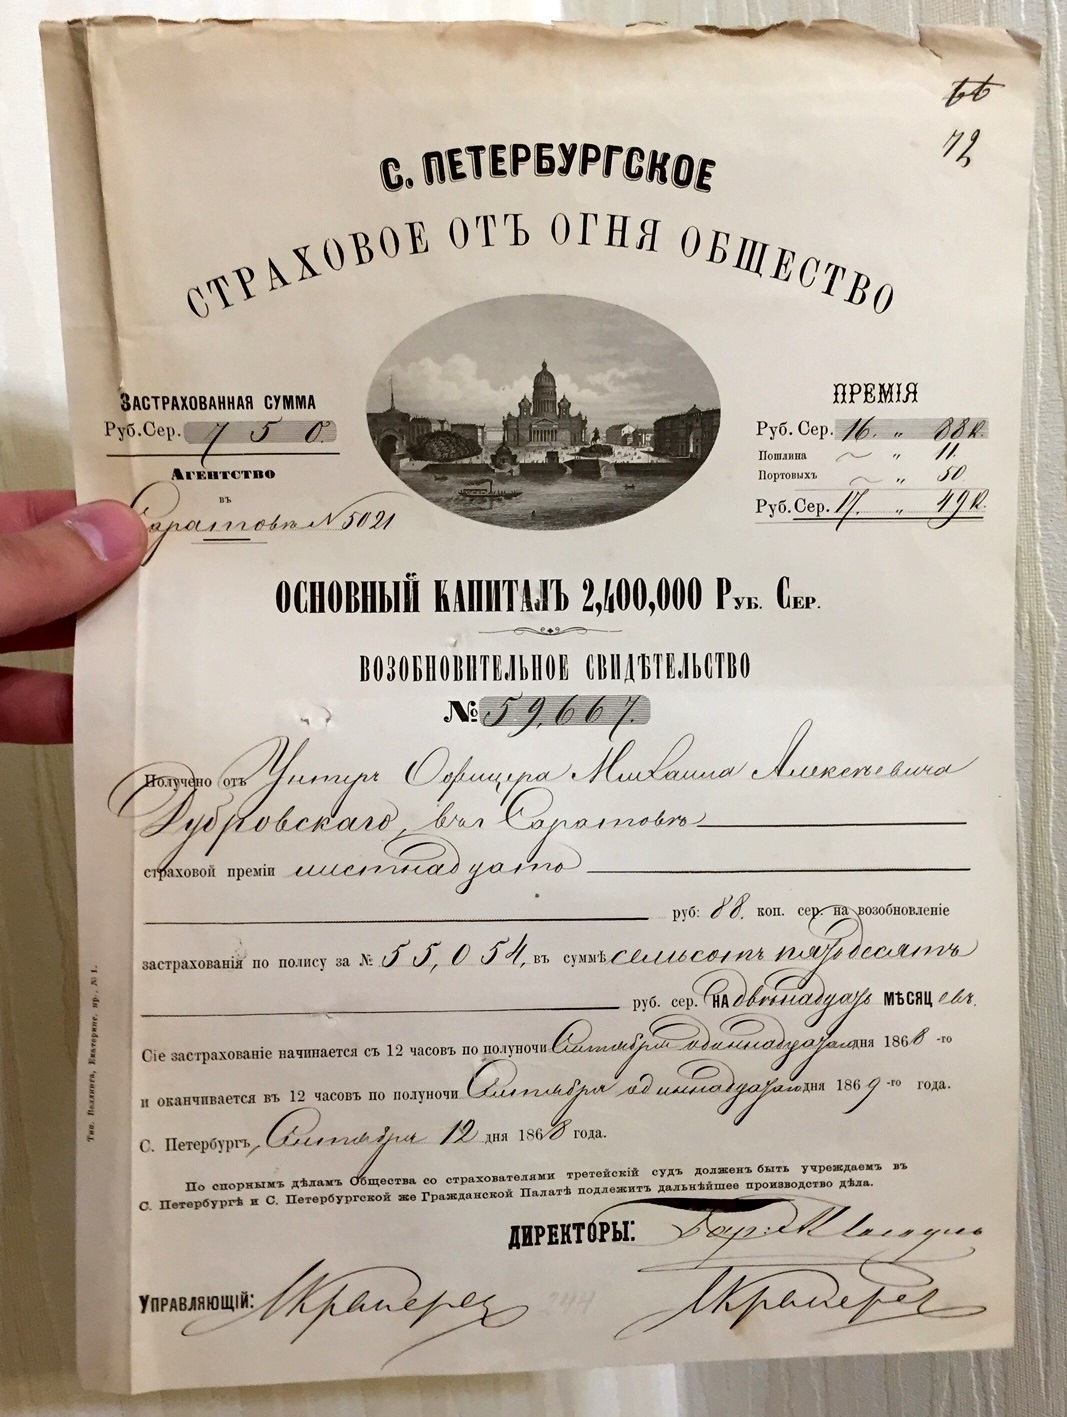 72
С. ПЕТЕРБУРГСКОЕ
СТРАХОВОЕ ОТЪ ОГНЯ ОБЩЕСТВО
ЗАСТРАХОВАННАЯ СУММА
Руб.Сер. 750.
АГЕНТСТВО
въ
Саратовѣ N 5021
ПРЕМІЯ
Руб. Сер. 16. „ 88к.
Пошлина ~ „ 11.
Портовыхъ ~ „ 50
Руб. Сер. 17. „ 49к.
ОСНОВНЫЙ КАПИТАЛЪ 2,400,000 РУБ. СЕР.
ВОЗОБНОВИТЕЛЬНОЕ СВИДѢТЕЛЬСТВО
№ 59,667.
Получено отъ Унтеръ Офицера Михаила Алексѣевича
Дубровскаго, въ г Саратовѣ
страховой преміи шестнадцать
руб: 88. коп. сер. на возобновленіе
застрахованія по полису за № 55,054, въ суммѣ семьсотъ пятьдесятъ
руб. сер. НА двѣнадцать МѢСЯЦевъ.
Сіе застрахованіе начинается съ 12 часовъ по полуночи Сентября одиннадцатаго дня 1868-го
и оканчивается въ 12 часовъ по полуночи Сентября одиннадцатаго дня 1869-го года.
С. Петербургъ, Сентября 12 дня 1868 года.
По спорнымъ дѣламъ Общества со страхователями третейскій судъ долженъ быть учреждаемъ въ
С. Петербургѣ и С. Петербургской же Гражданской Палатѣ подлежитъ дальнѣйшее производство дѣла.
ДИРЕКТОРЫ:
УПРАВЛЯЮЩІЙ:
244